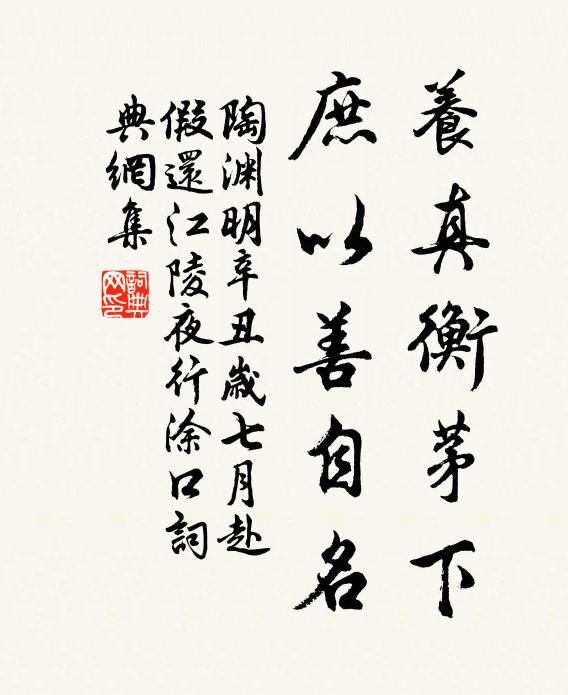 養真衡茅下
庶以善自名
陶渊明辛丑歲七月赴
假還江陵夜行涂口詞
典網集
詞典
网印